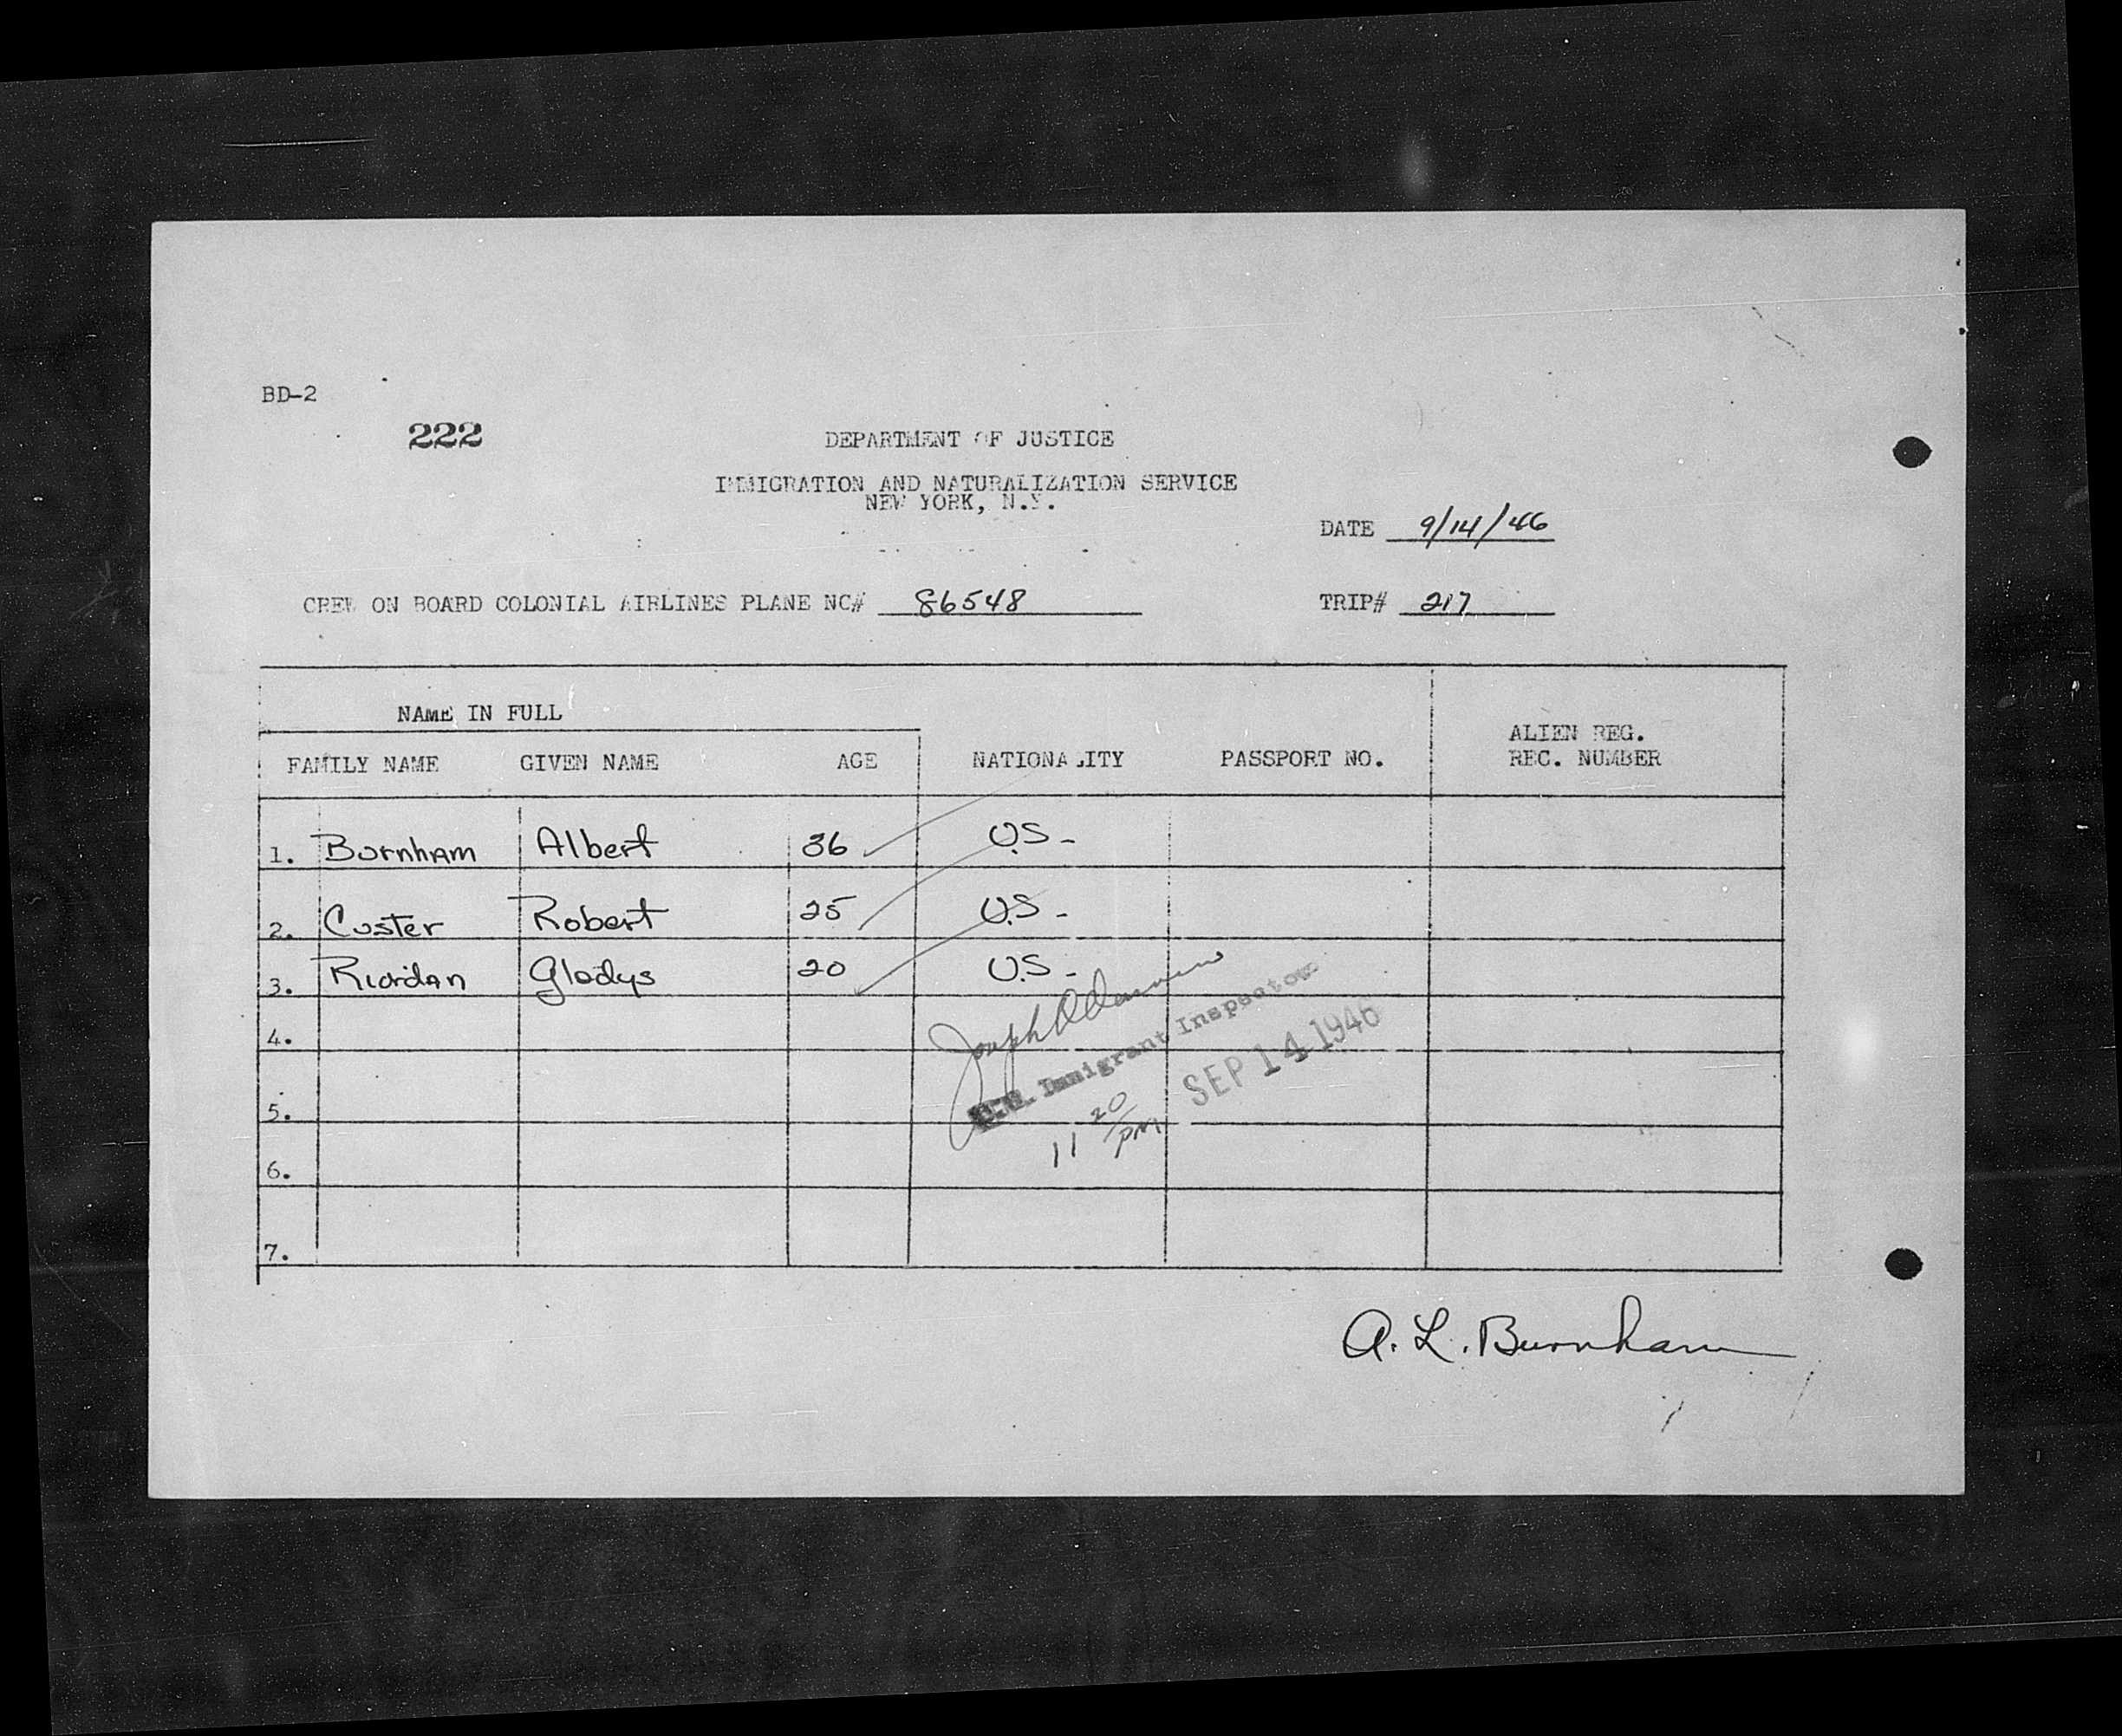 BD-2
222
DEPARTMENT OF JUSTICE
IMMIGRATION AND NATURALIZATION SERVICE
NEW YORK, N.Y.
DATE 9/14/46
CREW ON BOARD COLONIAL AIRLINES PLANE NC# 86548 TRIP# 217
NAME IN FULL
FAMILY NAME GIVEN NAME AGE NATIONALITY PASSPORT NO. ALIEN REG. REC. NUMBER
1. Burnham Albert 36 U.S.-
2. Custer Robert 25 U.S.-
3. Riordan Gladys 20 U.S.-
Joseph
Immigrant Inspector
SEP 14 1946
11 20 PM
4.
5.
6.
7.
A. L. Burnham